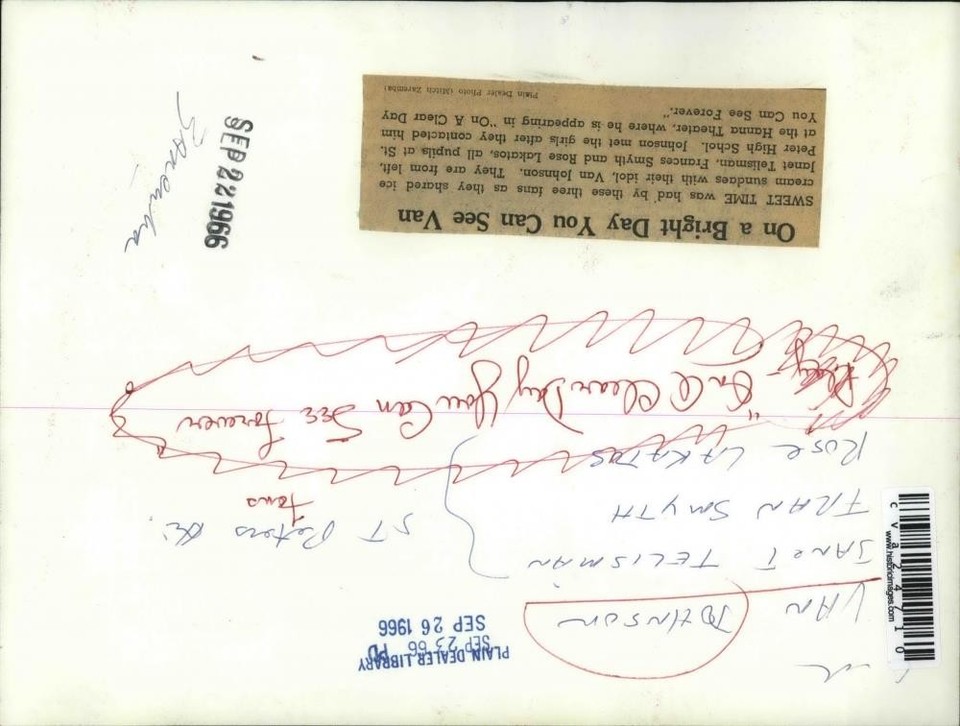 PLAIN DEALER LIBRARY
SEP 23 66 PD
SEP 26 1966
VAN JOHNSON
JANET TELISMAN
FRAN SMYTH
ROSE LAKATOS
ST Peters
fans
Play - "On A Clear Day You Can See Forever"
On a Bright Day You Can See Van
SWEET TIME was had by these three fans as they shared ice
cream sundaes with their idol, Van Johnson. They are from left,
Janet Telisman, Frances Smyth and Rose Lakatos, all pupils at St.
Peter High Schol. Johnson met the girls after they contacted him
at the Hanna Theater, where he is appearing in "On A Clear Day
You Can See Forever".
Plain Dealer Photo (Mitch Zaremba)
SEP 22 1966
Zaremba
cva24710
www.historicimages.com